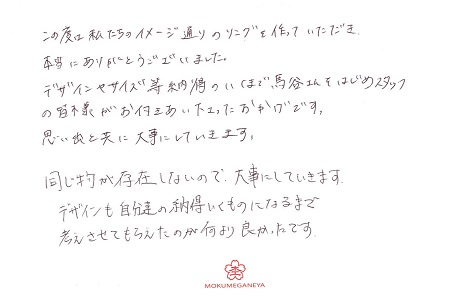 この度は私たちのイメージ通りのリングを作っていただき
本当にありがとうございました。
デザインやサイズ等納得のいくまで馬谷さんをはじめスタッフ
の皆様がお付きあい下さったおかげです。
思い出と共に大事にしていきます。
同じ物が存在しないので、大事にしていきます。
デザインも自分達の納得いくものになるまで
考えさせてもらえたのが何より良かったです。
MOKUMEGANEYA